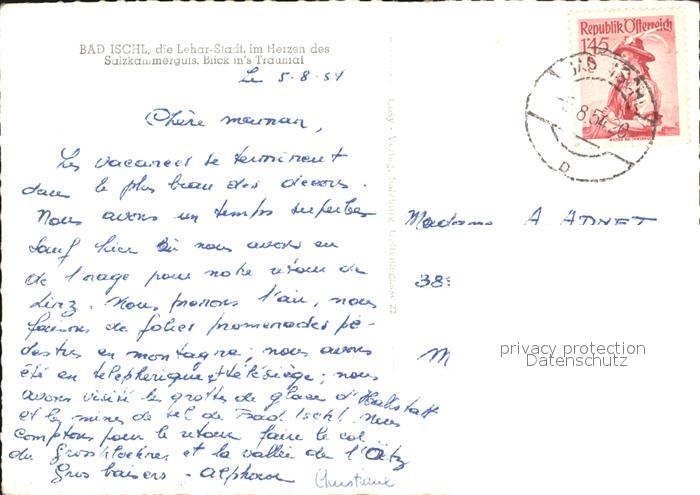 BAD ISCHL, die Lehar-Stadt, im Herzen des
Salzkammerguts, Blick in's Trauntal
Le 5-8-54
Chère maman,
Les vacances se terminent
dans le plus beau des décors.
Nous avons un temps superbe
sauf hier où nous avons eu
de l'orage pour notre retour de
Linz. Nous prenons l'air, nous
faisons de jolies promenades pé-
destres en montagne; nous avons
été en telepherique et télésiège; nous
avons visité les grottes de glace d'Hallstatt
et les mines de sel de Bad Ischl. Nous
comptons pour le retour faire le col
du Grossglockner et la vallée de l'Ötz
Gros baisers - Alphonse
Christiane
Cosy-Verlag Salzburg
22
Republik Österreich
1'45
BAD ISCHL
8.54-20
D
Madame A. ADNET
38
M
privacy protection
Datenschutz